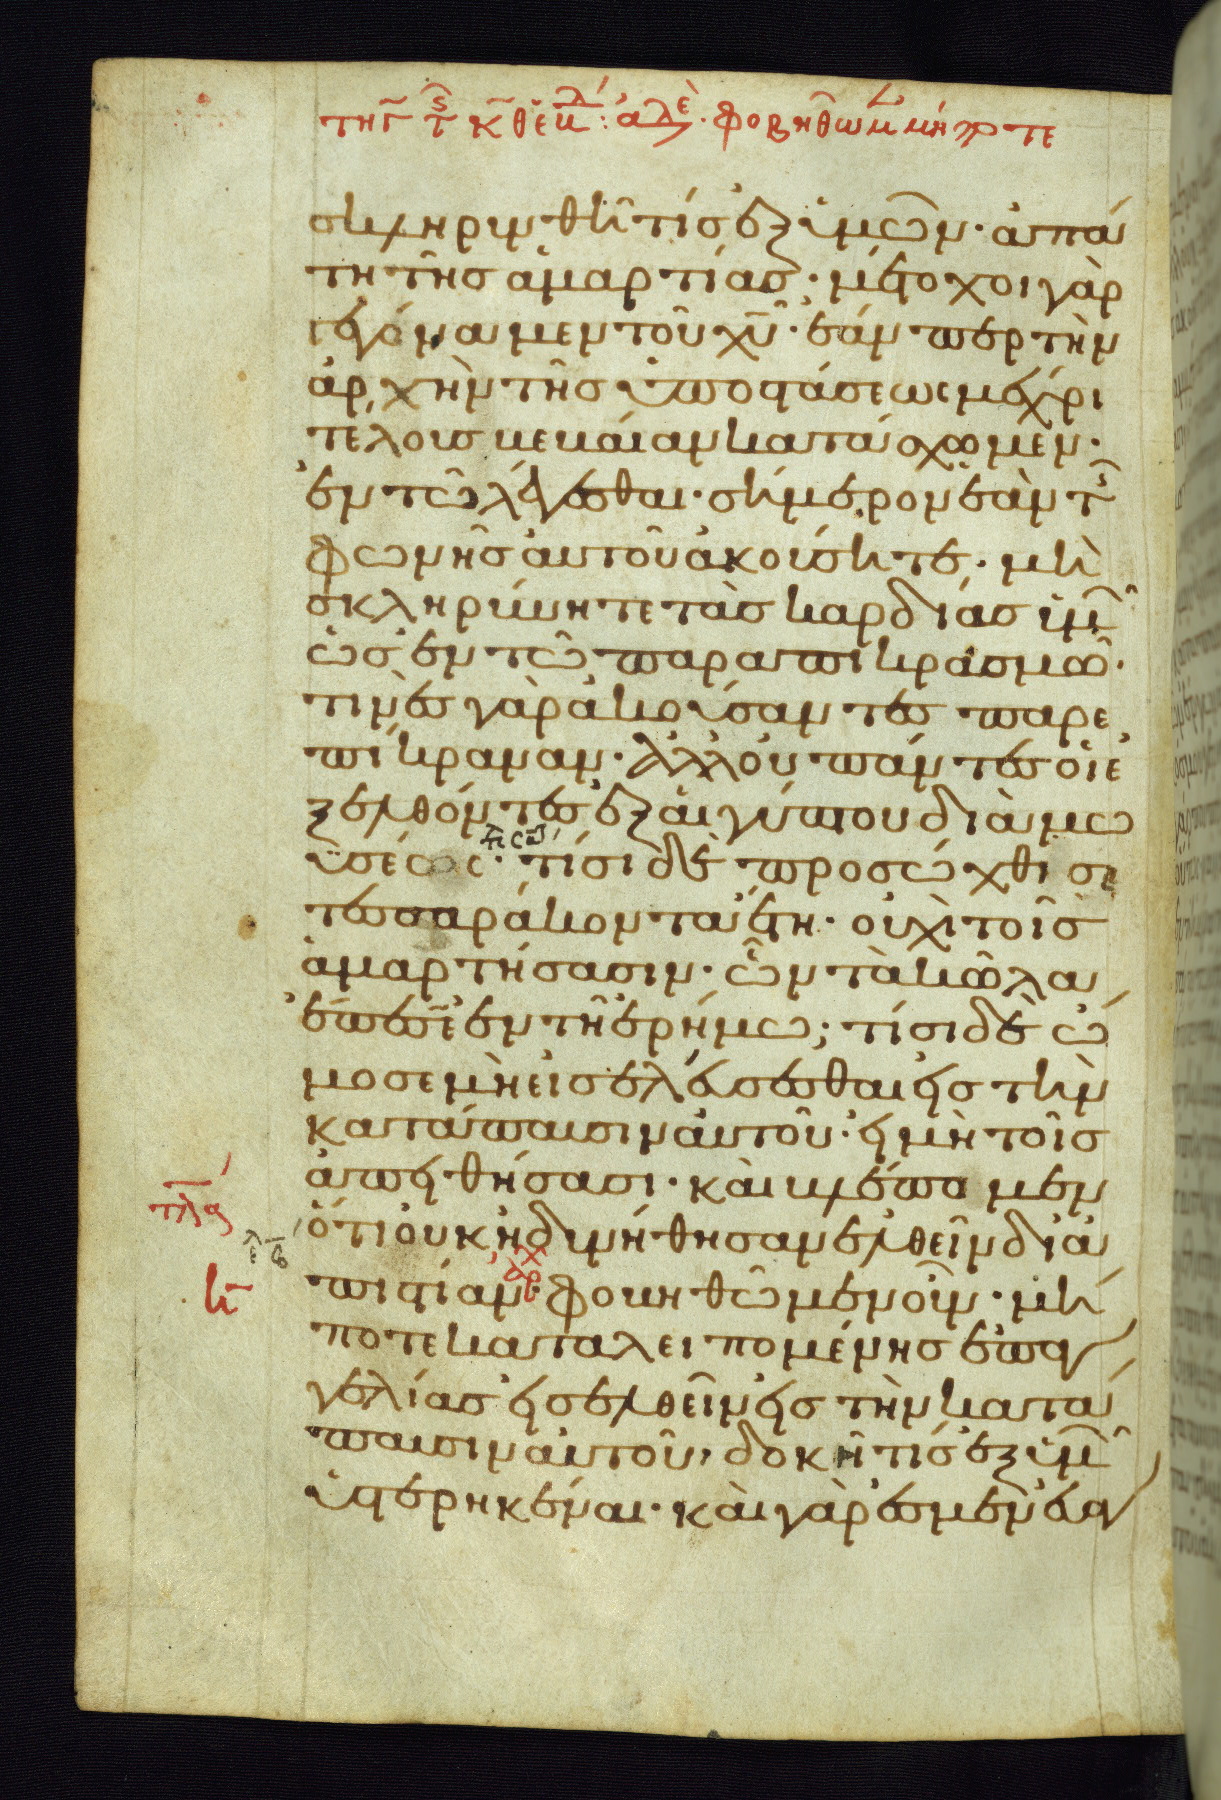 σκληρυνθῆ τίς ἐξ ὑμῶν· ἀπά
τη τῆς ἁμαρτίας· μέτοχοι γὰρ
γεγόναμεν τοῦ χυ̅· ἐάνπερ τὴν
ἀρχὴν τῆς ὑποστάσεως μέχρι
τέλους βεβαίαν κατάσχωμεν·
ἐν τῶ λέγεσθαι· σήμερον ἐὰν τῆς
φωνῆς αὐτοῦ ἀκούσητε· μὴ
σκληρύνητε τὰς καρδίας ὑμῶν
ὡς ἐν τῶ παραπικρασμῶ·
τινὲς γὰρ ἀκούσαντες παρε
πίκραναν· ἀλλ' οὐ πάντες οἱ ἐ
ξελθόντες ἐξ αἰγύπτου διὰ μω
ϋσέως· τίσι δὲ προσώχθισε
τεσσαράκοντα ἔτη· οὐχὶ τοῖς
ἁμαρτήσασιν· ὧν τὰ κῶλα
ἔπεσεν ἐν τῆ ἐρήμω; τίσι δὲ ὤ
μοσε μὴ εἰσελεύσεσθαι εἰς τὴν
κατάπαυσιν αὐτοῦ· εἰ μὴ τοῖς
ἀπειθήσασι· καὶ βλέπομεν
ὅτι οὐκ ἠδυνήθησαν εἰσελθεῖν δι' ἀ
πιστίαν· φοβηθῶμεν οὖν· μή
ποτε καταλειπομένης ἐπαγ
γελίας εἰσελθεῖν εἰς τὴν κατά
παυσιν αὐτοῦ, δοκῆ τίς ἐξ ὑμῶν
ὑστερηκέναι· καὶ γάρ ἐσμεν εὐηγ